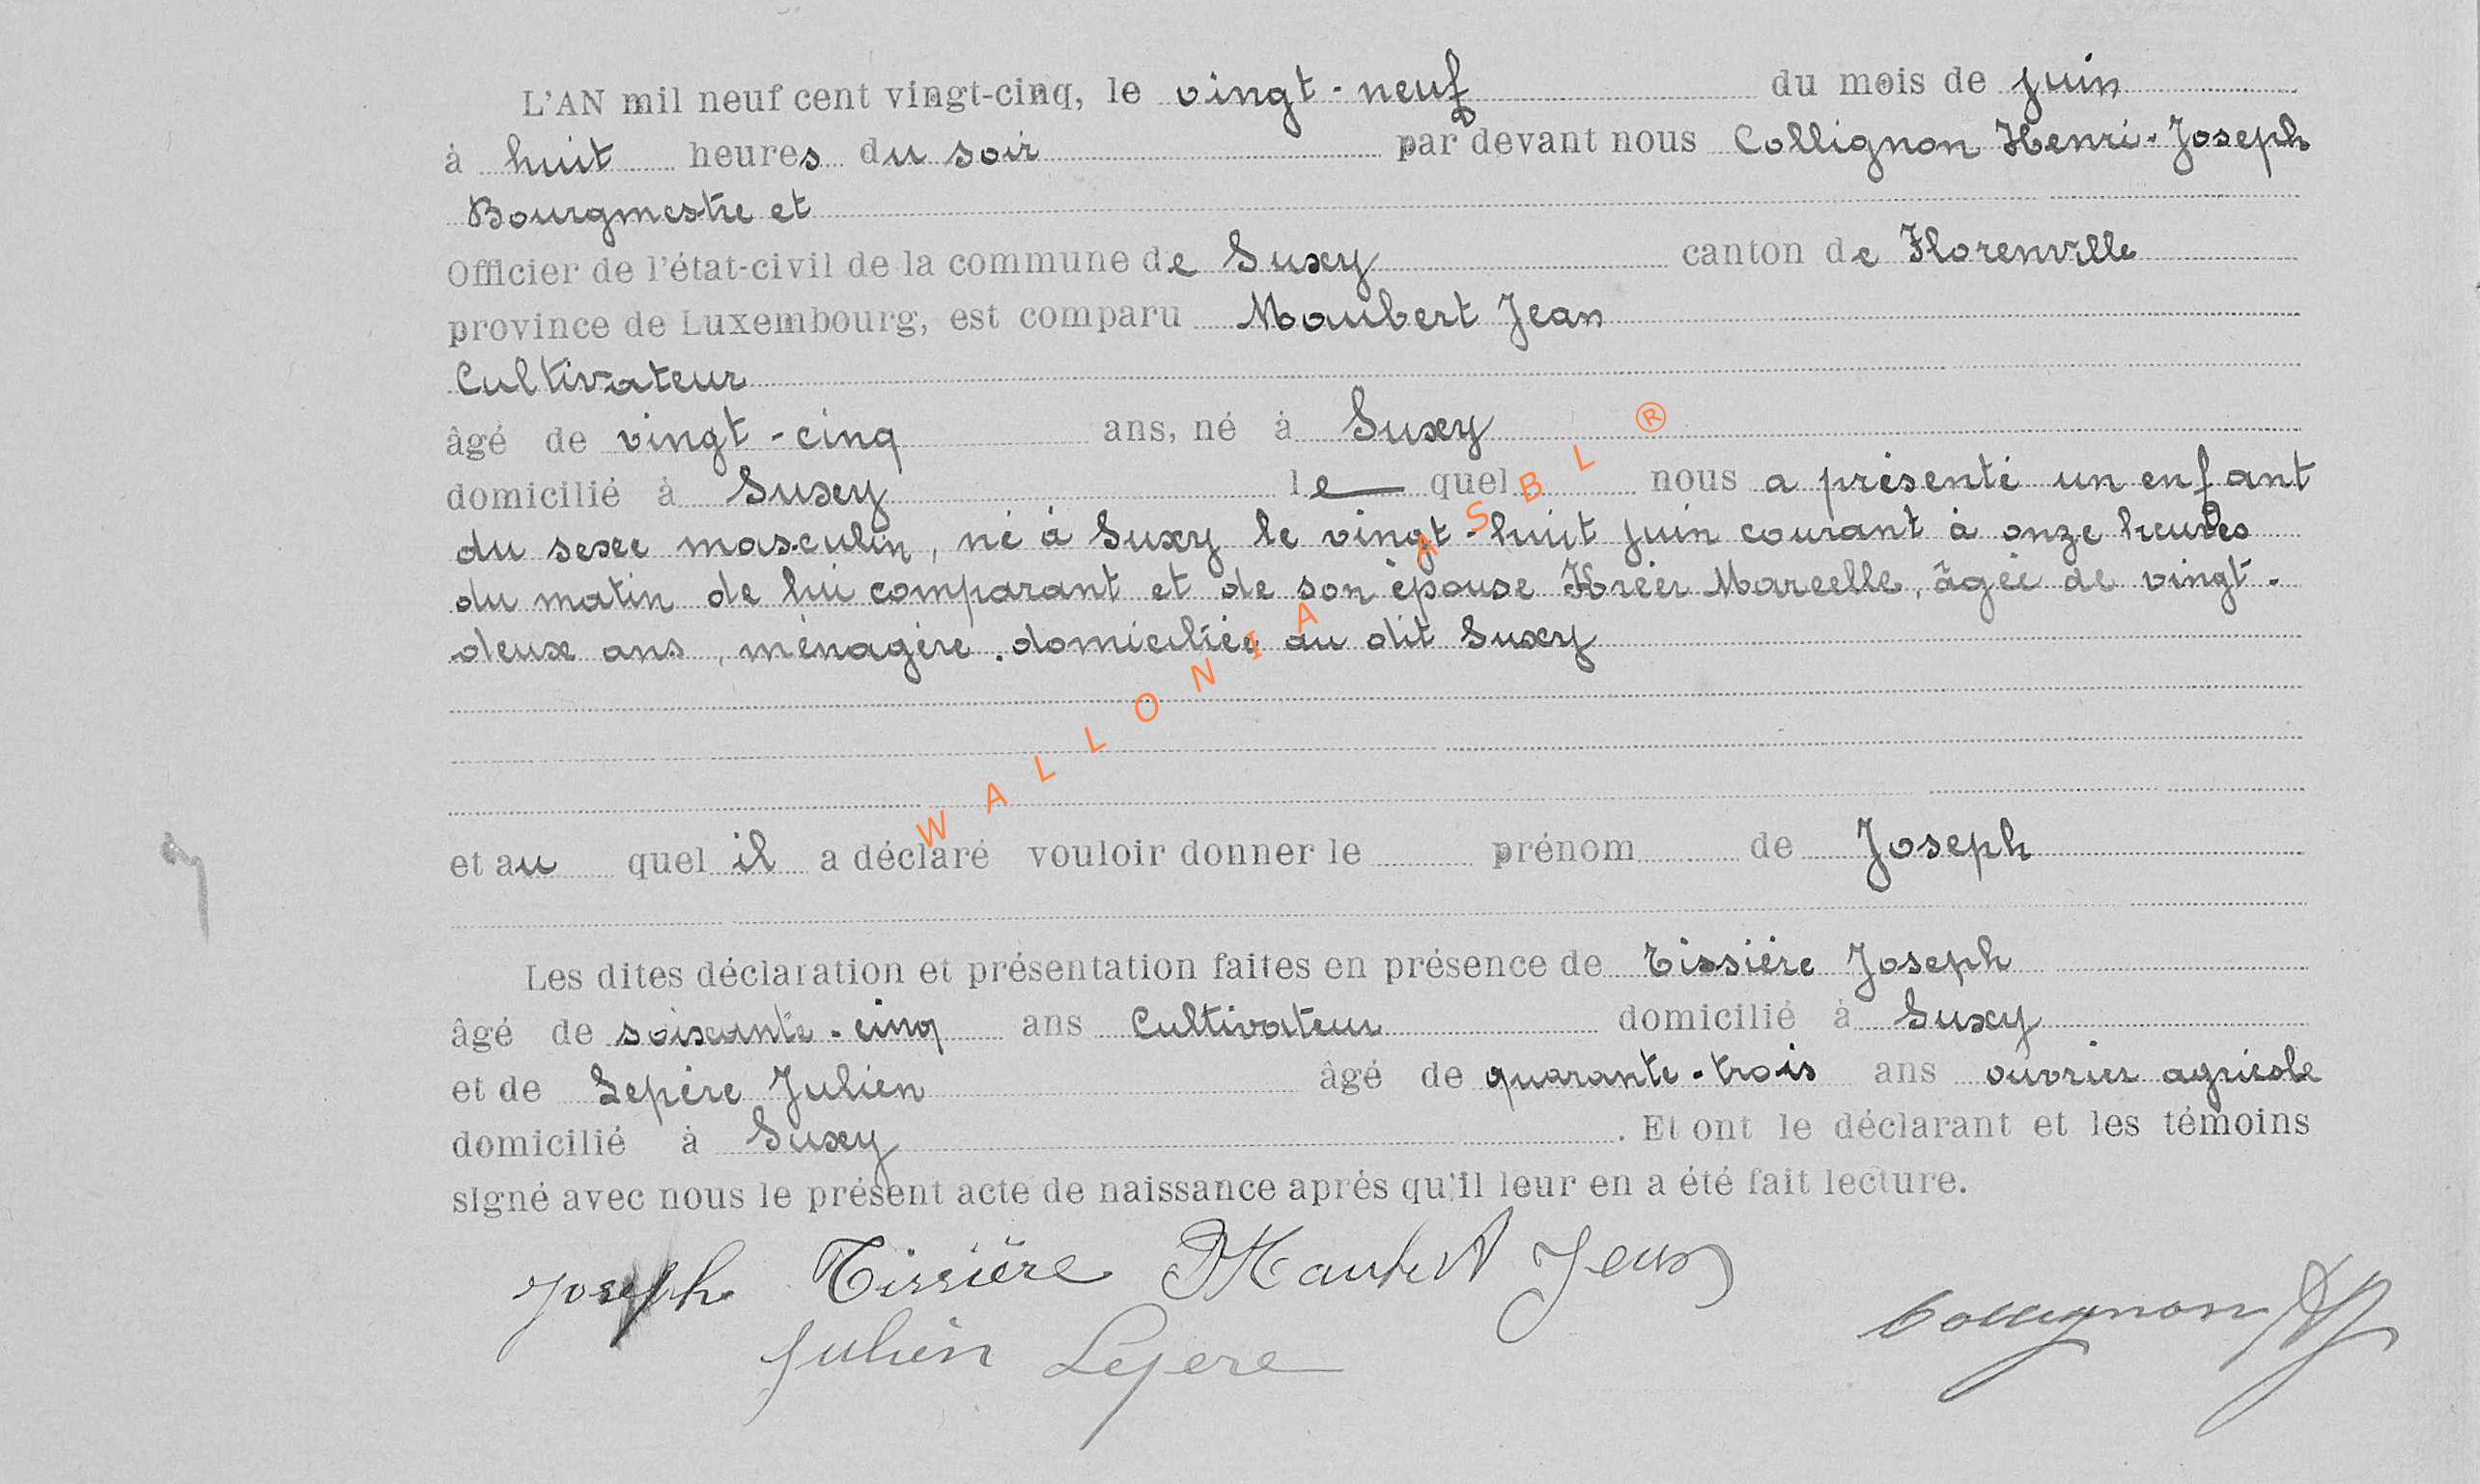 L'AN mil neuf cent vingt-cinq, le vingt-neuf du mois de juin
à huit heures du soir par devant nous Collignon Henri-Joseph
Bourgmestre et
Officier de l'état-civil de la commune de Suxy canton de Florenville
province de Luxembourg, est comparu Maubert Jean
Cultivateur
âgé de vingt-cinq ans, né à Suxy
domicilié à Suxy le quel nous a présenté un enfant
du sexe masculin, né à Suxy le vingt-huit juin courant à onze heures
du matin de lui comparant et de son épouse Kréer Marcelle, âgée de vingt-
deux ans, ménagère, domiciliée au dit Suxy
WALLONIA ASBL ®
et au quel il a déclaré vouloir donner le prénom de Joseph
Les dites déclaration et présentation faites en présence de Tissière Joseph
âgé de soixante-cinq ans Cultivateur domicilié à Suxy
et de Lepère Julien âgé de quarante-trois ans ouvrier agricole
domicilié à Suxy. Et ont le déclarant et les témoins
signé avec nous le présent acte de naissance après qu'il leur en a été fait lecture.
Joseph Tissière Maubert Jean
Collignon HJ
Julien Lepere